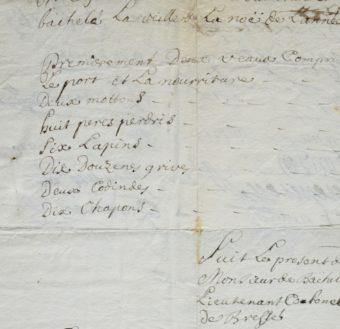 bachelé La veille de La noë de Lannée
Premierement Deux veaux Compri
Le port et La nourriture
Deux mottons
huit peres perdris
Six Lapins
Dix Douzenes grives
Deux Codindes
Dix Chapons
Suit Le present
Monsieur de Bachel
Lieutenant Colonel
de Bresles